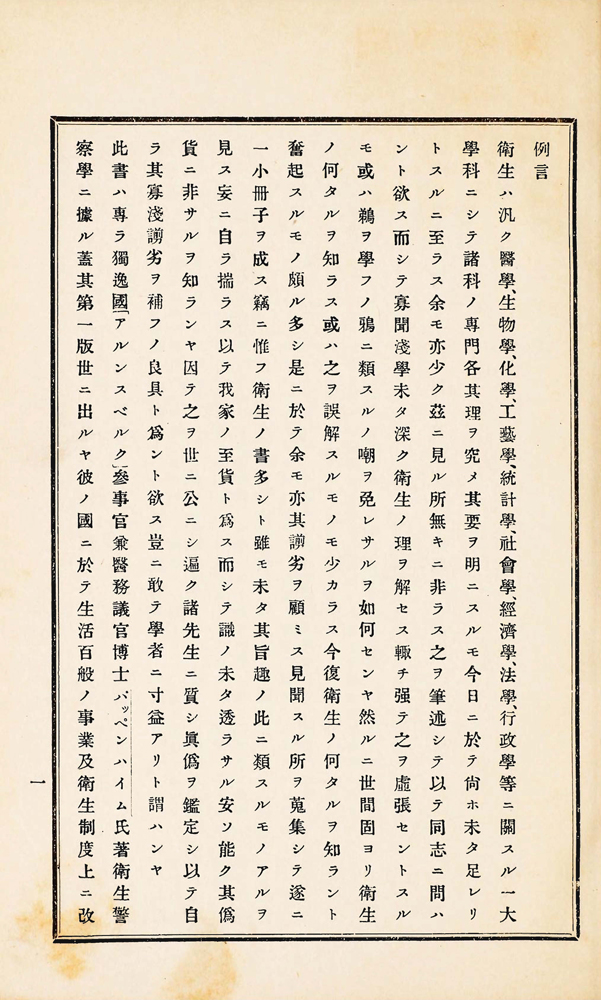 例言
衛生ハ汎ク醫學、生物學、化學、工藝學、統計學、社會學、經濟學、法學、行政學等ニ關スル一大
學科ニシテ諸科ノ專門各其理ヲ究メ其要ヲ明ニスルモ今日ニ於テ尙ホ未タ足レリ
トスルニ至ラス余モ亦少ク茲ニ見ル所無キニ非ラス之ヲ筆述シテ以テ同志ニ問ハ
ント欲ス而シテ寡聞淺學未タ深ク衛生ノ理ヲ解セス輙チ强テ之ヲ虛張セントスル
モ或ハ鵜ヲ學フノ鴉ニ類スルノ嘲ヲ免レサルヲ如何センヤ然ルニ世間固ヨリ衛生
ノ何タルヲ知ラス或ハ之ヲ誤解スルモノモ少カラス今復衛生ノ何タルヲ知ラント
奮起スルモノ頗ル多シ是ニ於テ余モ亦其謭劣ヲ顧ミス見聞スル所ヲ蒐集シテ遂ニ
一小冊子ヲ成ス竊ニ惟フ衛生ノ書多シト雖モ未タ其旨趣ノ此ニ類スルモノアルヲ
見ス妄ニ自ラ揣ラス以テ我家ノ至貨ト爲ス而シテ識ノ未タ透ラサル安ソ能ク其僞
貨ニ非サルヲ知ランヤ因テ之ヲ世ニ公ニシ遍ク諸先生ニ質シ眞僞ヲ鑑定シ以テ自
ラ其寡淺謭劣ヲ補フノ良具ト爲ント欲ス豈ニ敢テ學者ニ寸益アリト謂ハンヤ
此書ハ專ラ獨逸國「アルンスベルク」參事官兼醫務議官博士パッペンハイム氏著衛生警
察學ニ據ル蓋其第一版世ニ出ルヤ彼ノ國ニ於テ生活百般ノ事業及衛生制度上ニ改
一